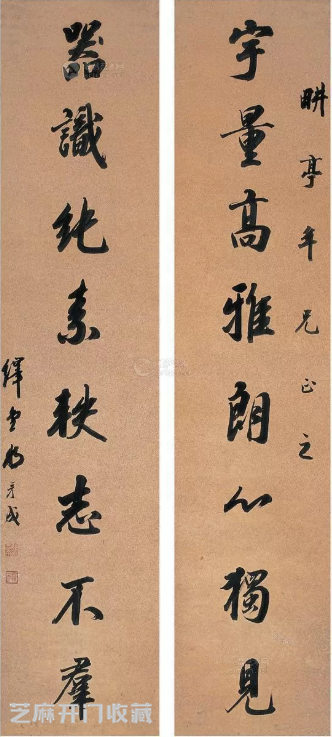 畊亭年兄正之
宇量高雅朗心獨見
器識純素軼志不羣
繹堂那彥成
芝麻开门收藏